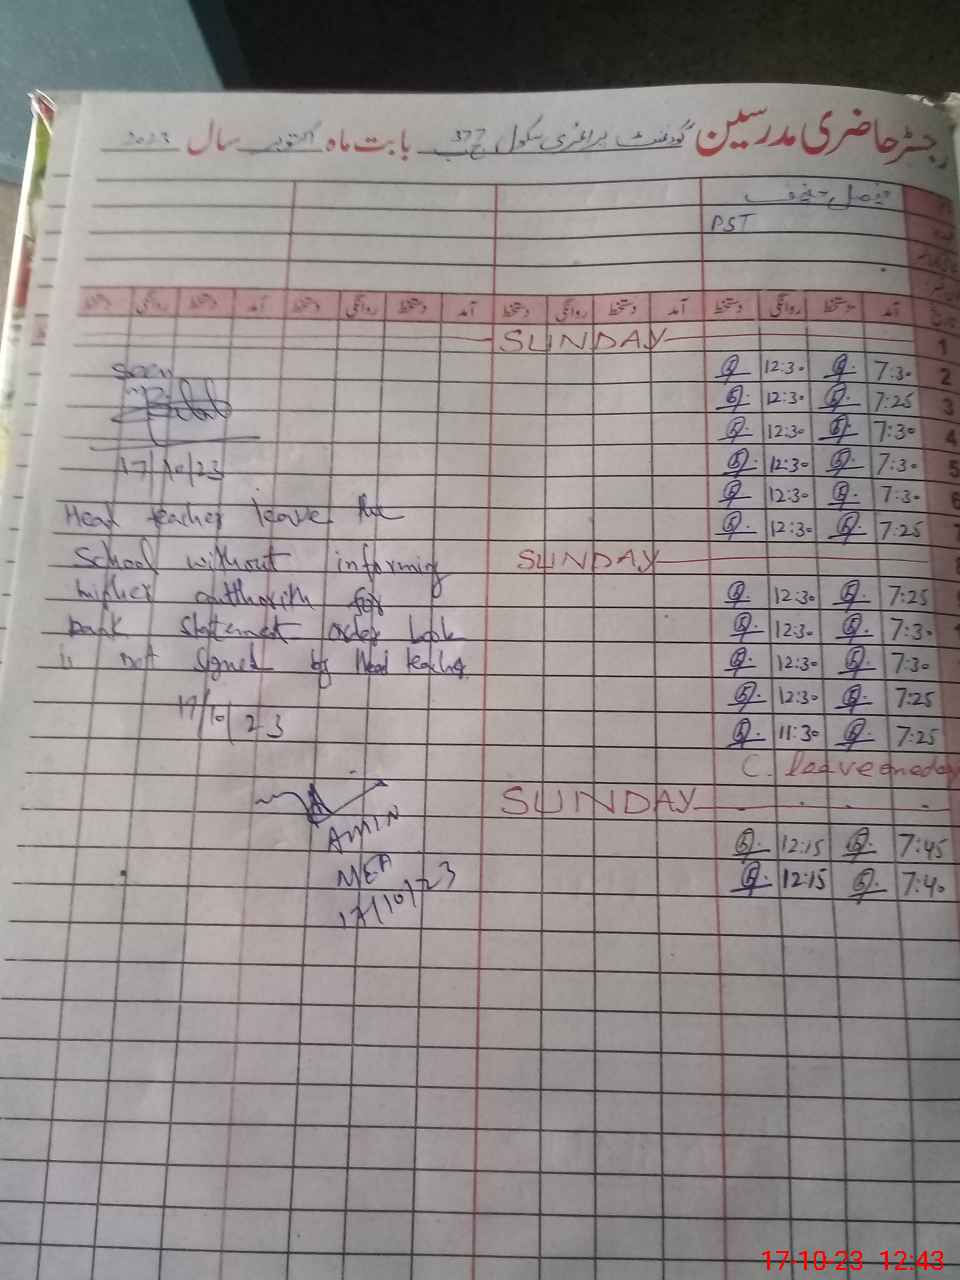 رجسٹر حاضری مدرسین گورنمنٹ پرائمری سکول 377 ج ب بابت ماہ اکتوبر سال 2023
PST
آمد دستخط روانگی دستخط آمد دستخط روانگی دستخط آمد دستخط روانگی دستخط
1 SUNDAY
2 7:30 12:30
3 7:25 12:30
4 7:30 12:30
5 7:30 12:30
6 7:30 12:30
7 7:25 12:30
8 SUNDAY
7:25 12:30
7:30 12:30
7:30 12:30
7:25 12:30
7:25 11:30
C. leave oneday
SUNDAY
7:45 12:15
7:40 12:15
Seen
17/10/23
Head teacher leave the
School without informing
higher authority for
bank statement order book
is not signed by Head teacher
17/10/23
AMIN
MEA
17/10/23
17-10-23 12:43